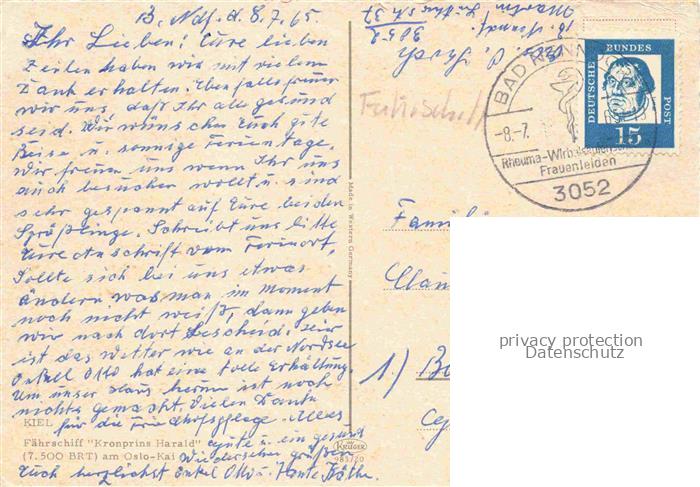 B. Ndf. d. 8.7.65.
Ihr Lieben! Eure lieben
Zeilen haben wir mit vielem
Dank erhalten. Ebenfalls freuen
wir uns, daß Ihr alle gesund
seid. Wir wünschen Euch gute
Reise u. sonnige Ferientage.
Wir freuen uns wenn Ihr uns
auch besuchen wollt u. sind
sehr gespannt auf Eure beiden
Sprößlinge. Schreibt uns bitte
Eure Anschrift vom Ferienort.
Sollte sich bei uns etwas
ändern was man im Moment
noch nicht weiß, dann geben
wir nach dort Bescheid. Hier
ist das Wetter wie an der Nordsee
Onkel Otto hat eine tolle Erkältung.
Um unser Haus herum ist noch
nichts gemacht. Vielen Dank
für die Friedhofspflege. Alles
gute u. ein gesund
Wiedersehen grüßen
Euch herzlichst Onkel Otto u. Tante Käthe.
KIEL
Fährschiff "Kronprins Harald"
(7.500 BRT) am Oslo-Kai
Made in Western Germany
KRÜGER
985/20
3052
BAD NENN
-8.-7.
Rheuma-Wirbelsäulen
Frauenleiden
3052
DEUTSCHE
BUNDES
POST
15
Famili
Clau
1)
privacy protection
Datenschutz